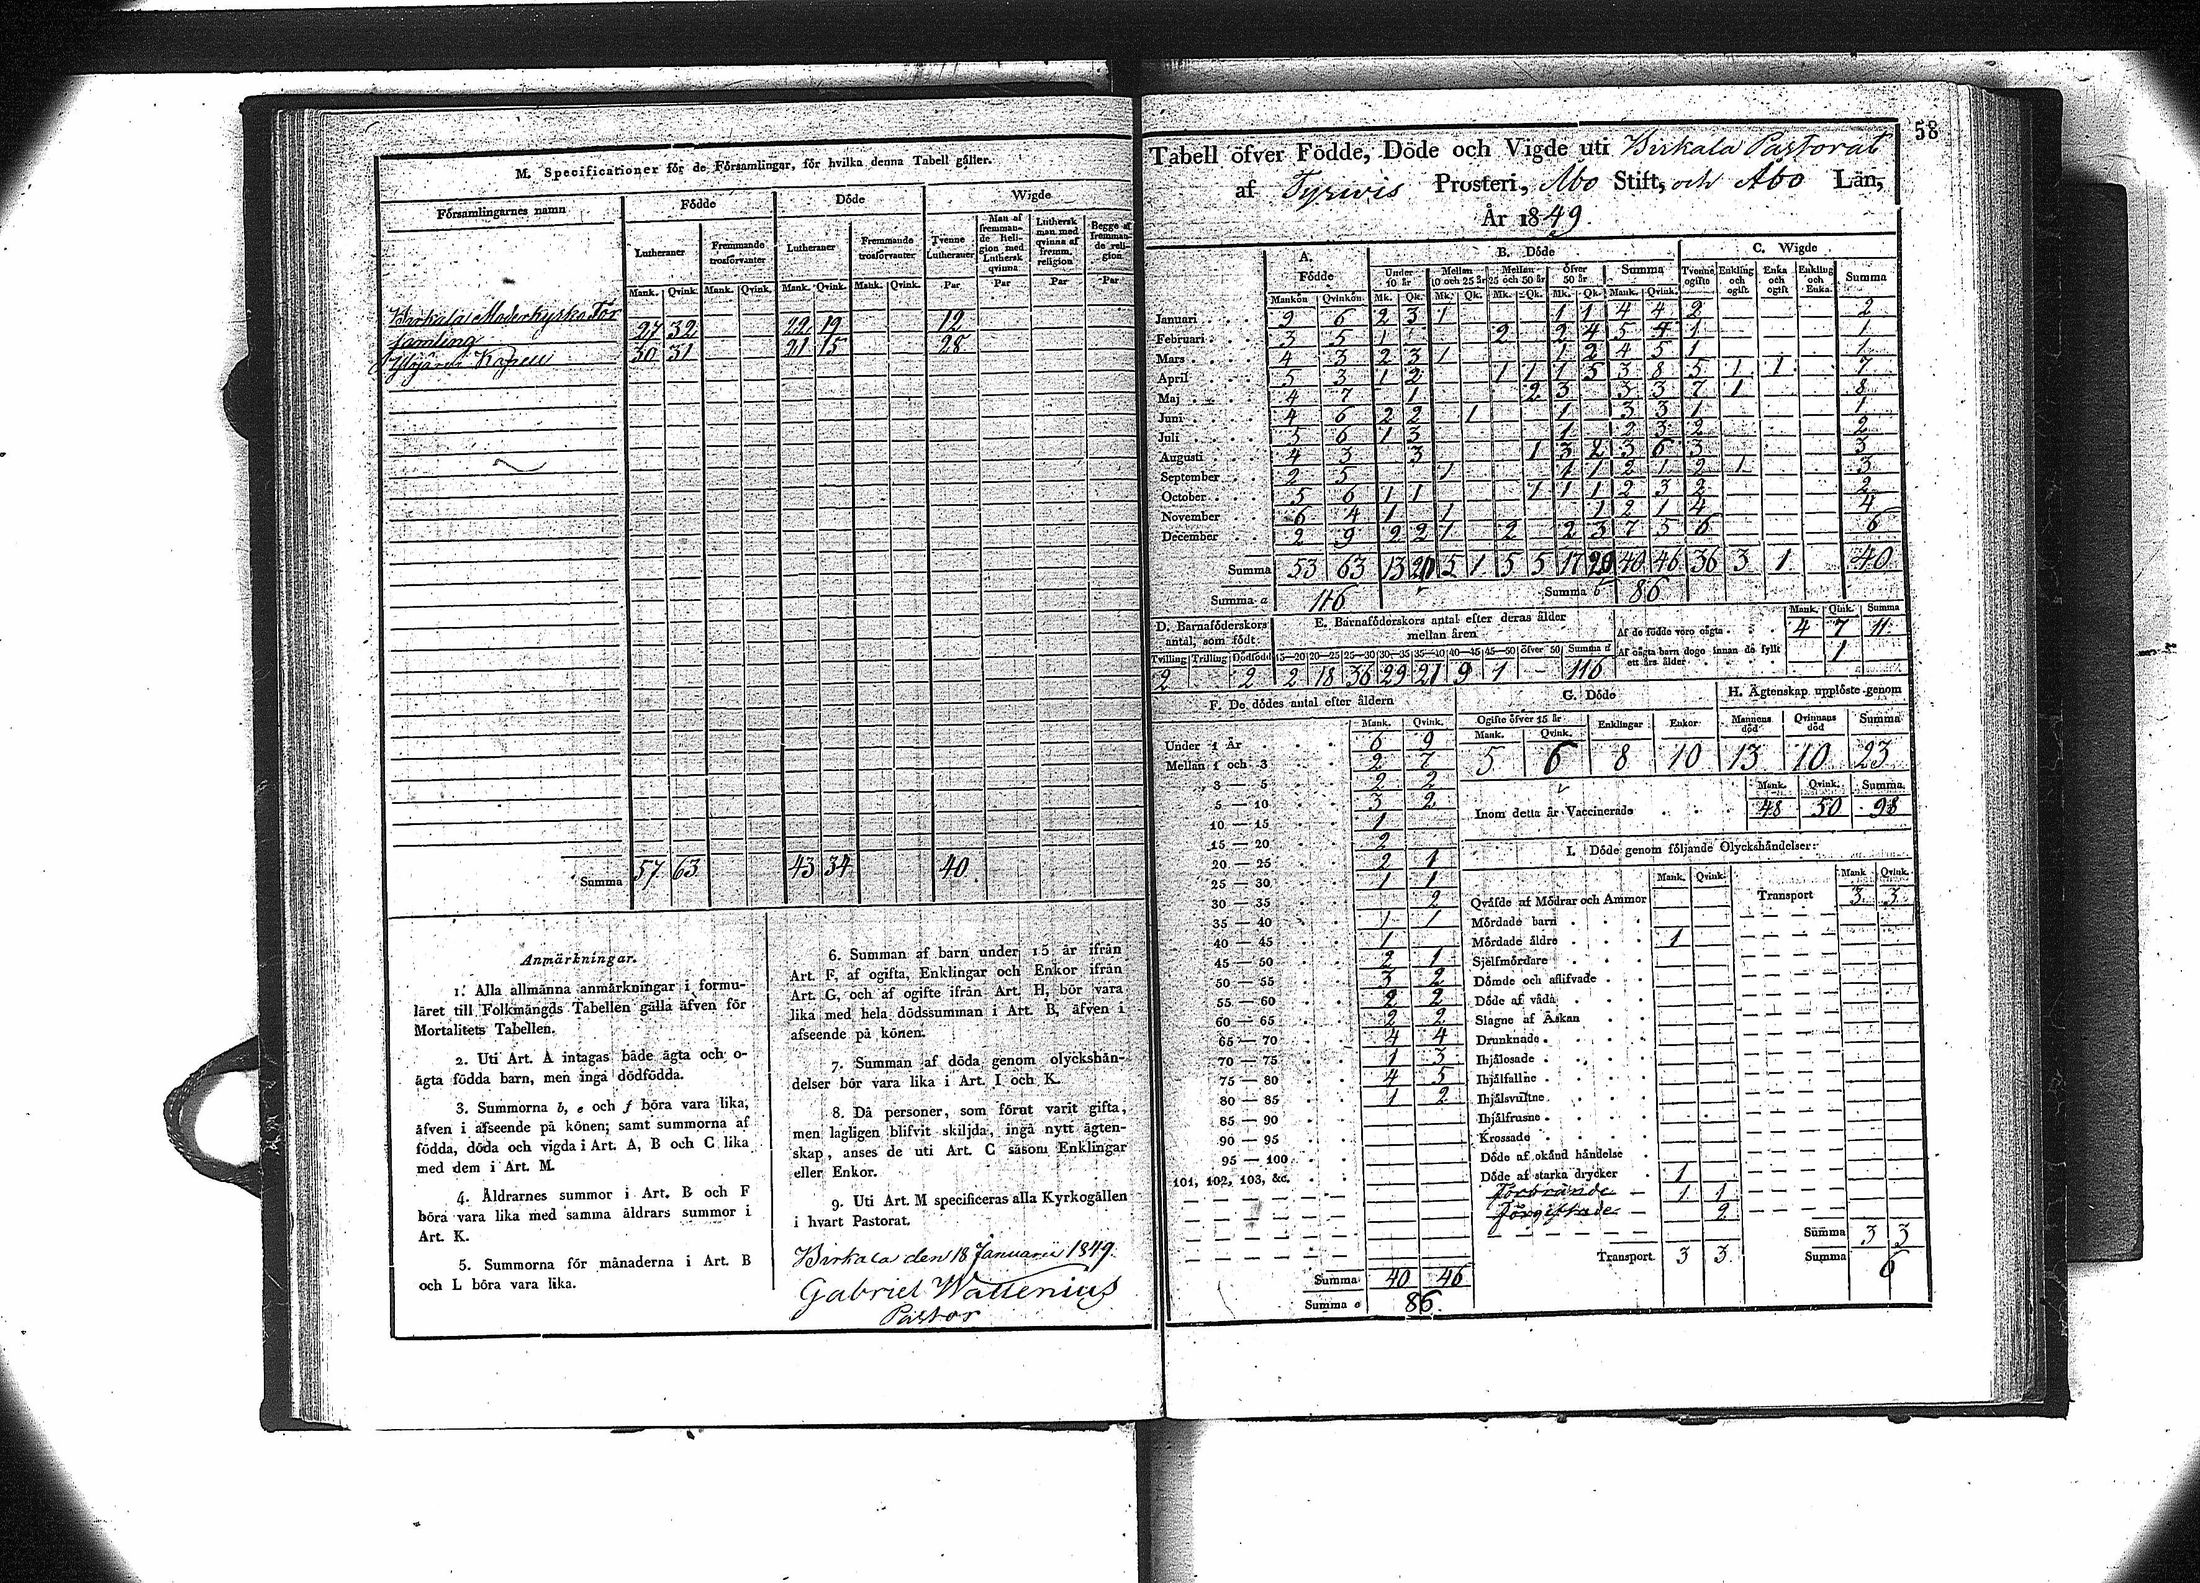 M. Specificationer för de Församlingar, för hvilka denna Tabell gäller.
Församlingarnes namn
Födde
Döde
Wigde
Lutheraner
Fremmande trosförvanter
Lutheraner
Fremmande trosförvanter
Tvenne Lutheraner
Man af fremmande Religion med Luthersk qvinna
Luthersk man med qvinna af fremm. religion
Begge af fremmande religion
Mank. Qvink. Mank. Qvink. Mank. Qvink. Mank. Qvink. Par Par Par Par
Birkala Moderkyrko För
samling 27 32 22 19 12
Ylöjärvi Kapell 30 31 21 15 28
Summa 57 63 43 34 40
Anmärkningar.
1. Alla allmänna anmärkningar i formu-
läret till Folkmängds Tabellen gälla äfven för
Mortalitets Tabellen.
2. Uti Art. A intagas både ägta och o-
ägta födda barn, men inga dödfödda.
3. Summorna b, e och f böra vara lika,
äfven i afseende på könen; samt summorna af
födda, döda och vigda i Art. A, B och C lika
med dem i Art. M.
4. Åldrarnes summor i Art. B och F
böra vara lika med samma åldrars summor i
Art. K.
5. Summorna för månaderna i Art. B
och L böra vara lika.
6. Summan af barn under 15 år ifrån
Art. F, af ogifta, Enklingar och Enkor ifrån
Art. G, och af ogifte ifrån Art. H, bör vara
lika med hela dödssumman i Art. B, äfven i
afseende på könen.
7. Summan af döda genom olyckshän-
delser bör vara lika i Art. I och K.
8. Då personer, som förut varit gifta,
men lagligen blifvit skiljda, ingå nytt ägten-
skap, anses de uti Art. C såsom Enklingar
eller Enkor.
9. Uti Art. M specificeras alla Kyrkogällen
i hvart Pastorat.
Birkala den 18 Januarii 1849.
Gabriel Wallenius
Pastor
58
Tabell öfver Födde, Döde och Vigde uti Birkala Pastorat
af Tyrvis Prosteri, Åbo Stift, och Åbo Län,
År 1849.
A. Födde
B. Döde
C. Wigde
Under 10 år
Mellan 10 och 25 år
Mellan 25 och 50 år
Öfver 50 år
Summa
Tvenne ogifte
Enkling och ogift
Enka och ogift
Enkling och Enka
Summa
Mankön Qvinkön Mk. Qk. Mk. Qk. Mk. Qk. Mk. Qk. Mank. Qvink.
Januari 9 6 2 3 1 1 1 4 4 2 2
Februari 3 5 1 2 2 4 5 4 1 1
Mars 4 3 2 3 1 1 2 4 5 1 1
April 5 3 1 2 1 1 1 5 3 8 5 1 1 7
Maj 4 7 1 2 3 3 3 7 1 8
Juni 4 6 2 2 1 1 3 3 1 1
Juli 5 6 1 3 1 2 3 2 2
Augusti 4 3 3 1 3 2 3 6 3 3
September 2 5 1 1 1 2 1 2 1 3
October 5 6 1 1 1 1 1 2 3 2 2
November 6 4 1 1 1 2 1 4 4
December 2 9 2 2 1 2 2 3 7 5 6 6
Summa 53 63 13 20 5 1 5 5 17 20 40 46 36 3 1 40
Summa a 116 Summa b 86
D. Barnaföderskors antal, som födt:
Tvilling Trilling Dödfödd
2 2
E. Barnaföderskors antal efter deras ålder
mellan åren
15—20 20—25 25—30 30—35 35—40 40—45 45—50 öfver 50 Summa d
2 18 36 29 21 9 1 — 116
Mank. Qink. Summa
Af de födde voro oägta 4 7 11
Af oägta barn dogo innan de fyllt
ett års ålder 1
F. De dödes antal efter åldern
Mank. Qvink.
Under 1 År 6 9
Mellan 1 och 3 2 7
3 — 5 2 2
5 — 10 3 2
10 — 15 1
15 — 20 2
20 — 25 2 1
25 — 30 1 1
30 — 35 2
35 — 40 1 1
40 — 45 1
45 — 50 2 1
50 — 55 3 2
55 — 60 2 2
60 — 65 2 2
65 — 70 4 4
70 — 75 1 3
75 — 80 4 5
80 — 85 1 2
85 — 90
90 — 95
95 — 100
101, 102, 103, &c.
Summa 40 46
Summa e 86
G. Döde
Ogifte öfver 15 år Enklingar Enkor
Mank. Qvink.
5 6 8 10
H. Ägtenskap upplöste genom
Mannens död Qvinnans död Summa
13 10 23
Mank. Qvink. Summa
Inom detta år Vaccinerade 48 50 98
I. Döde genom följande Olyckshändelser:
Mank. Qvink. Mank. Qvink.
Qväfde af Mödrar och Ammor
Transport 3 3
Mördade barn
Mördade äldre 1
Sjelfmördare
Dömde och aflifvade
Döde af våda
Slagne af Åskan
Drunknade
Ihjälosade
Ihjälfallne
Ihjälsvultne
Ihjälfrusne
Krossade
Döde af okänd händelse
Döde af starka drycker 1
Förbrände 1 1
Förgiftade 2
Transport 3 3
Summa 3 3
Summa 6